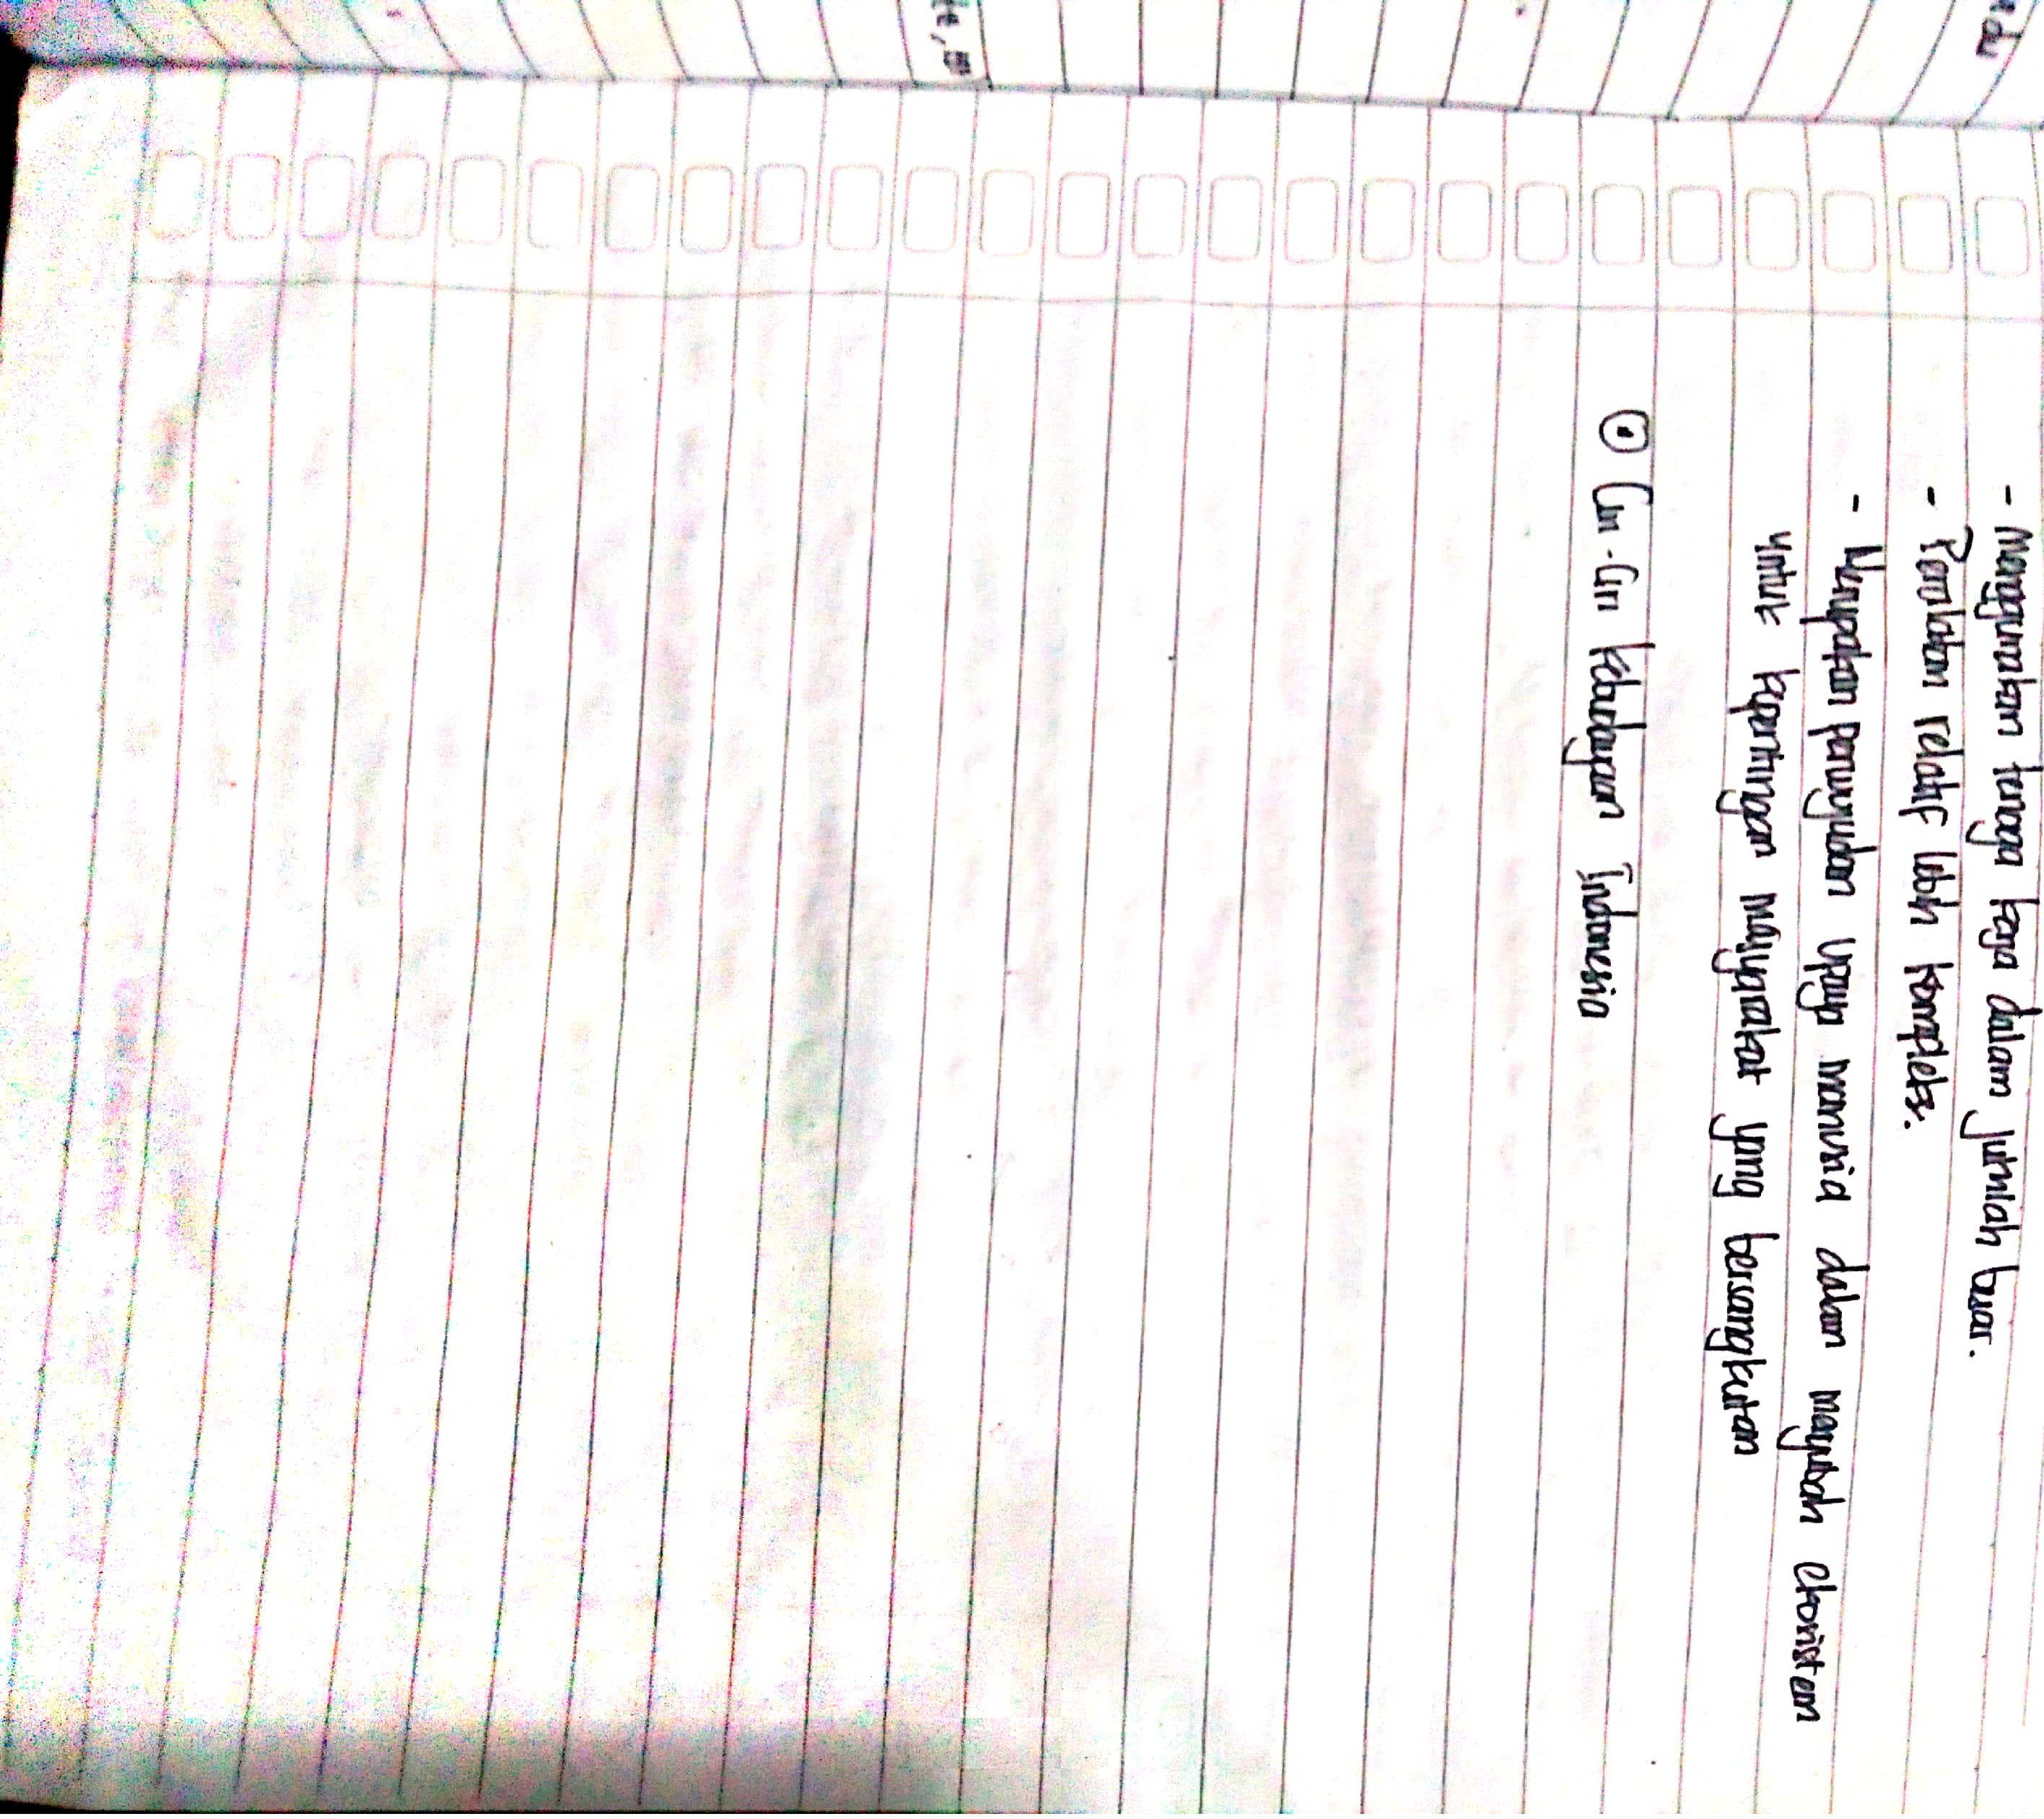 - Menggunakan tenaga kerja dalam jumlah besar.
- Peralatan relatif lebih kompleks.
- Merupakan perwujudan upaya manusia dalam mengubah ekosistem
untuk kepentingan masyarakat yang bersangkutan
⊙ Ciri-Ciri kebudayaan Indonesia